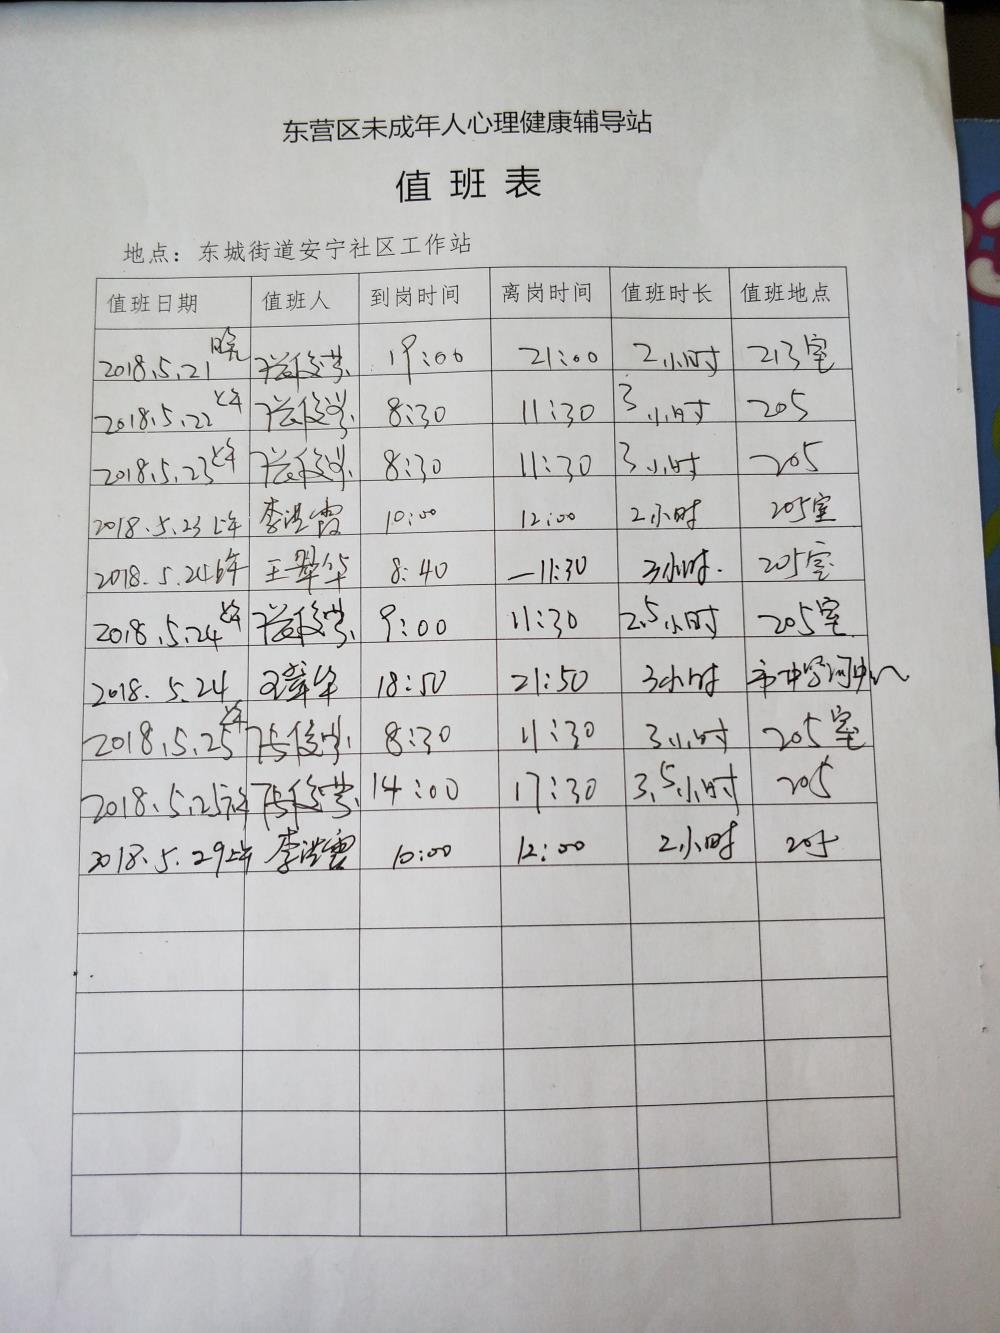 东营区未成年人心理健康辅导站
值班表
地点：东城街道安宁社区工作站
值班日期 值班人 到岗时间 离岗时间 值班时长 值班地点
2018.5.21晚 19:00 21:00 2小时 213室
2018.5.22上午 8:30 11:30 3小时 205
2018.5.23上午 8:30 11:30 3小时 205
2018.5.23上午 李洪霞 10:00 12:00 2小时 205室
2018.5.24上午 王翠华 8:40 —11:30 3小时. 205室
2018.5.24上午 9:00 11:30 2.5小时 205室
2018.5.24 王翠华 18:50 21:50 3小时
2018.5.25上午 8:30 11:30 3小时 205室
2018.5.25下午 14:00 17:30 3.5小时 205
2018.5.29上午 李洪霞 10:00 12:00 2小时 205